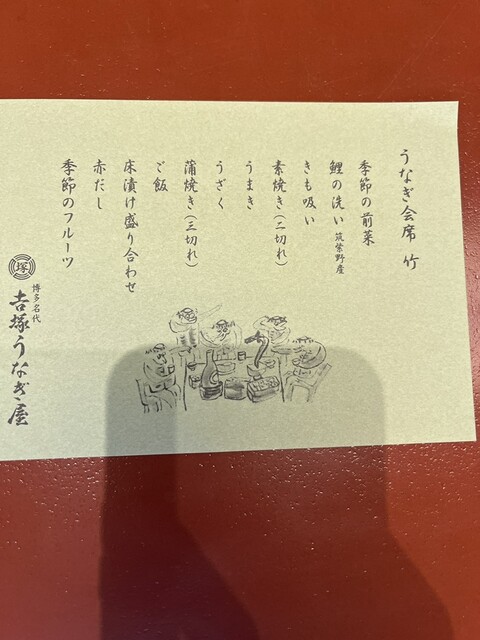 うなぎ会席 竹
季節の前菜
鯉の洗い 筑紫野産
きも吸い
素焼き(二切れ)
うまき
うざく
蒲焼き(三切れ)
ご飯
床漬け盛り合わせ
赤だし
季節のフルーツ
塚
博多名代
吉塚うなぎ屋